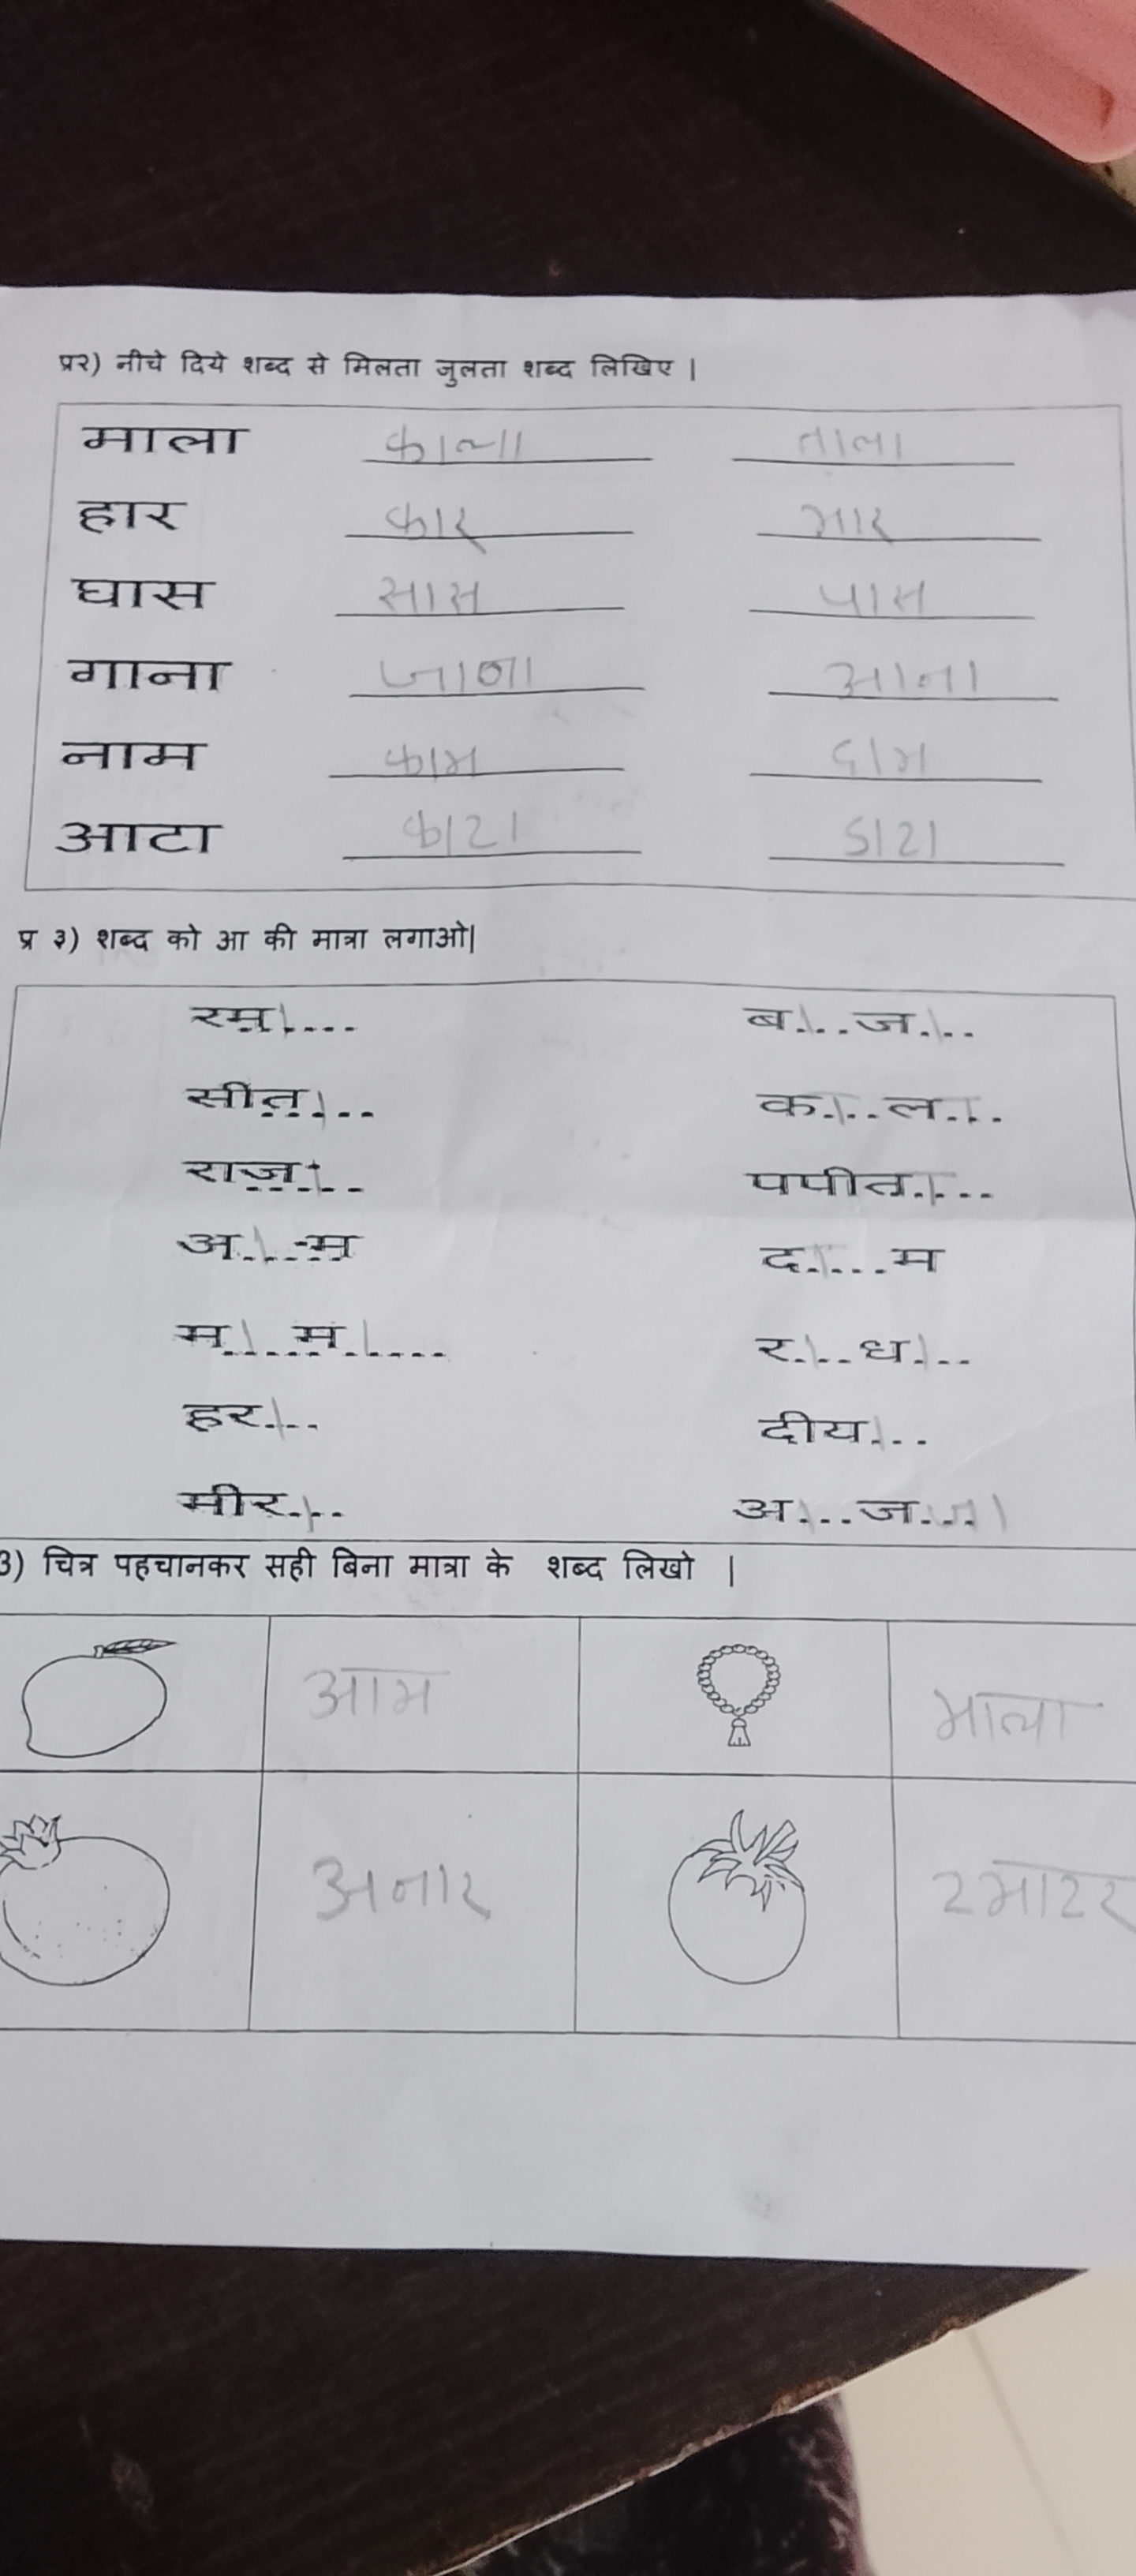 प्र२) नीचे दिये शब्द से मिलता जुलता शब्द लिखिए |
माला काला ताला
हार कार मार
घास सास पास
गाना जाना आना
नाम काम दाम
आटा काटा डाटा
प्र ३) शब्द को आ की मात्रा लगाओ|
रमा.... बा...जा...
सीता... का...ला...
राजा... पपीता...
आ...म दा....म
मा...मा.... रा...धा...
हरा... दीया...
मीरा... अ...ज...
3) चित्र पहचानकर सही बिना मात्रा के शब्द लिखो |
आम माला
अनार टमाटर